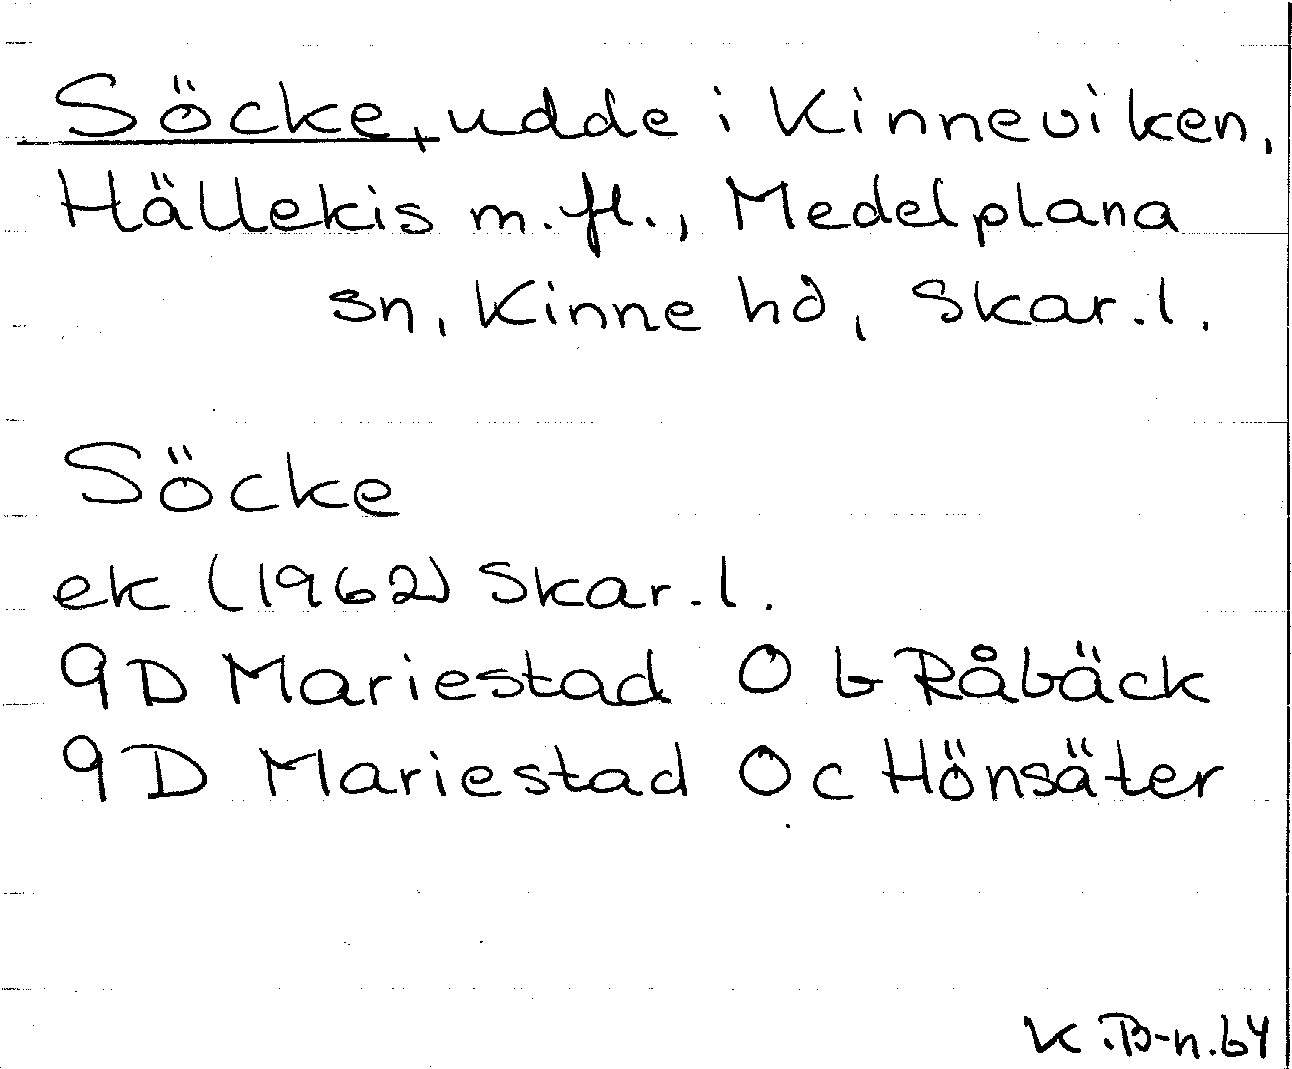 Söcke, udde i Kinneviken,
Hällekis m.fl., Medelplana
sn, Kinne hd, Skar.l.
Söcke
ek (1962) Skar.l.
9D Mariestad O b Råbäck
9D Mariestad O c Hönsäter
K.B-n.64